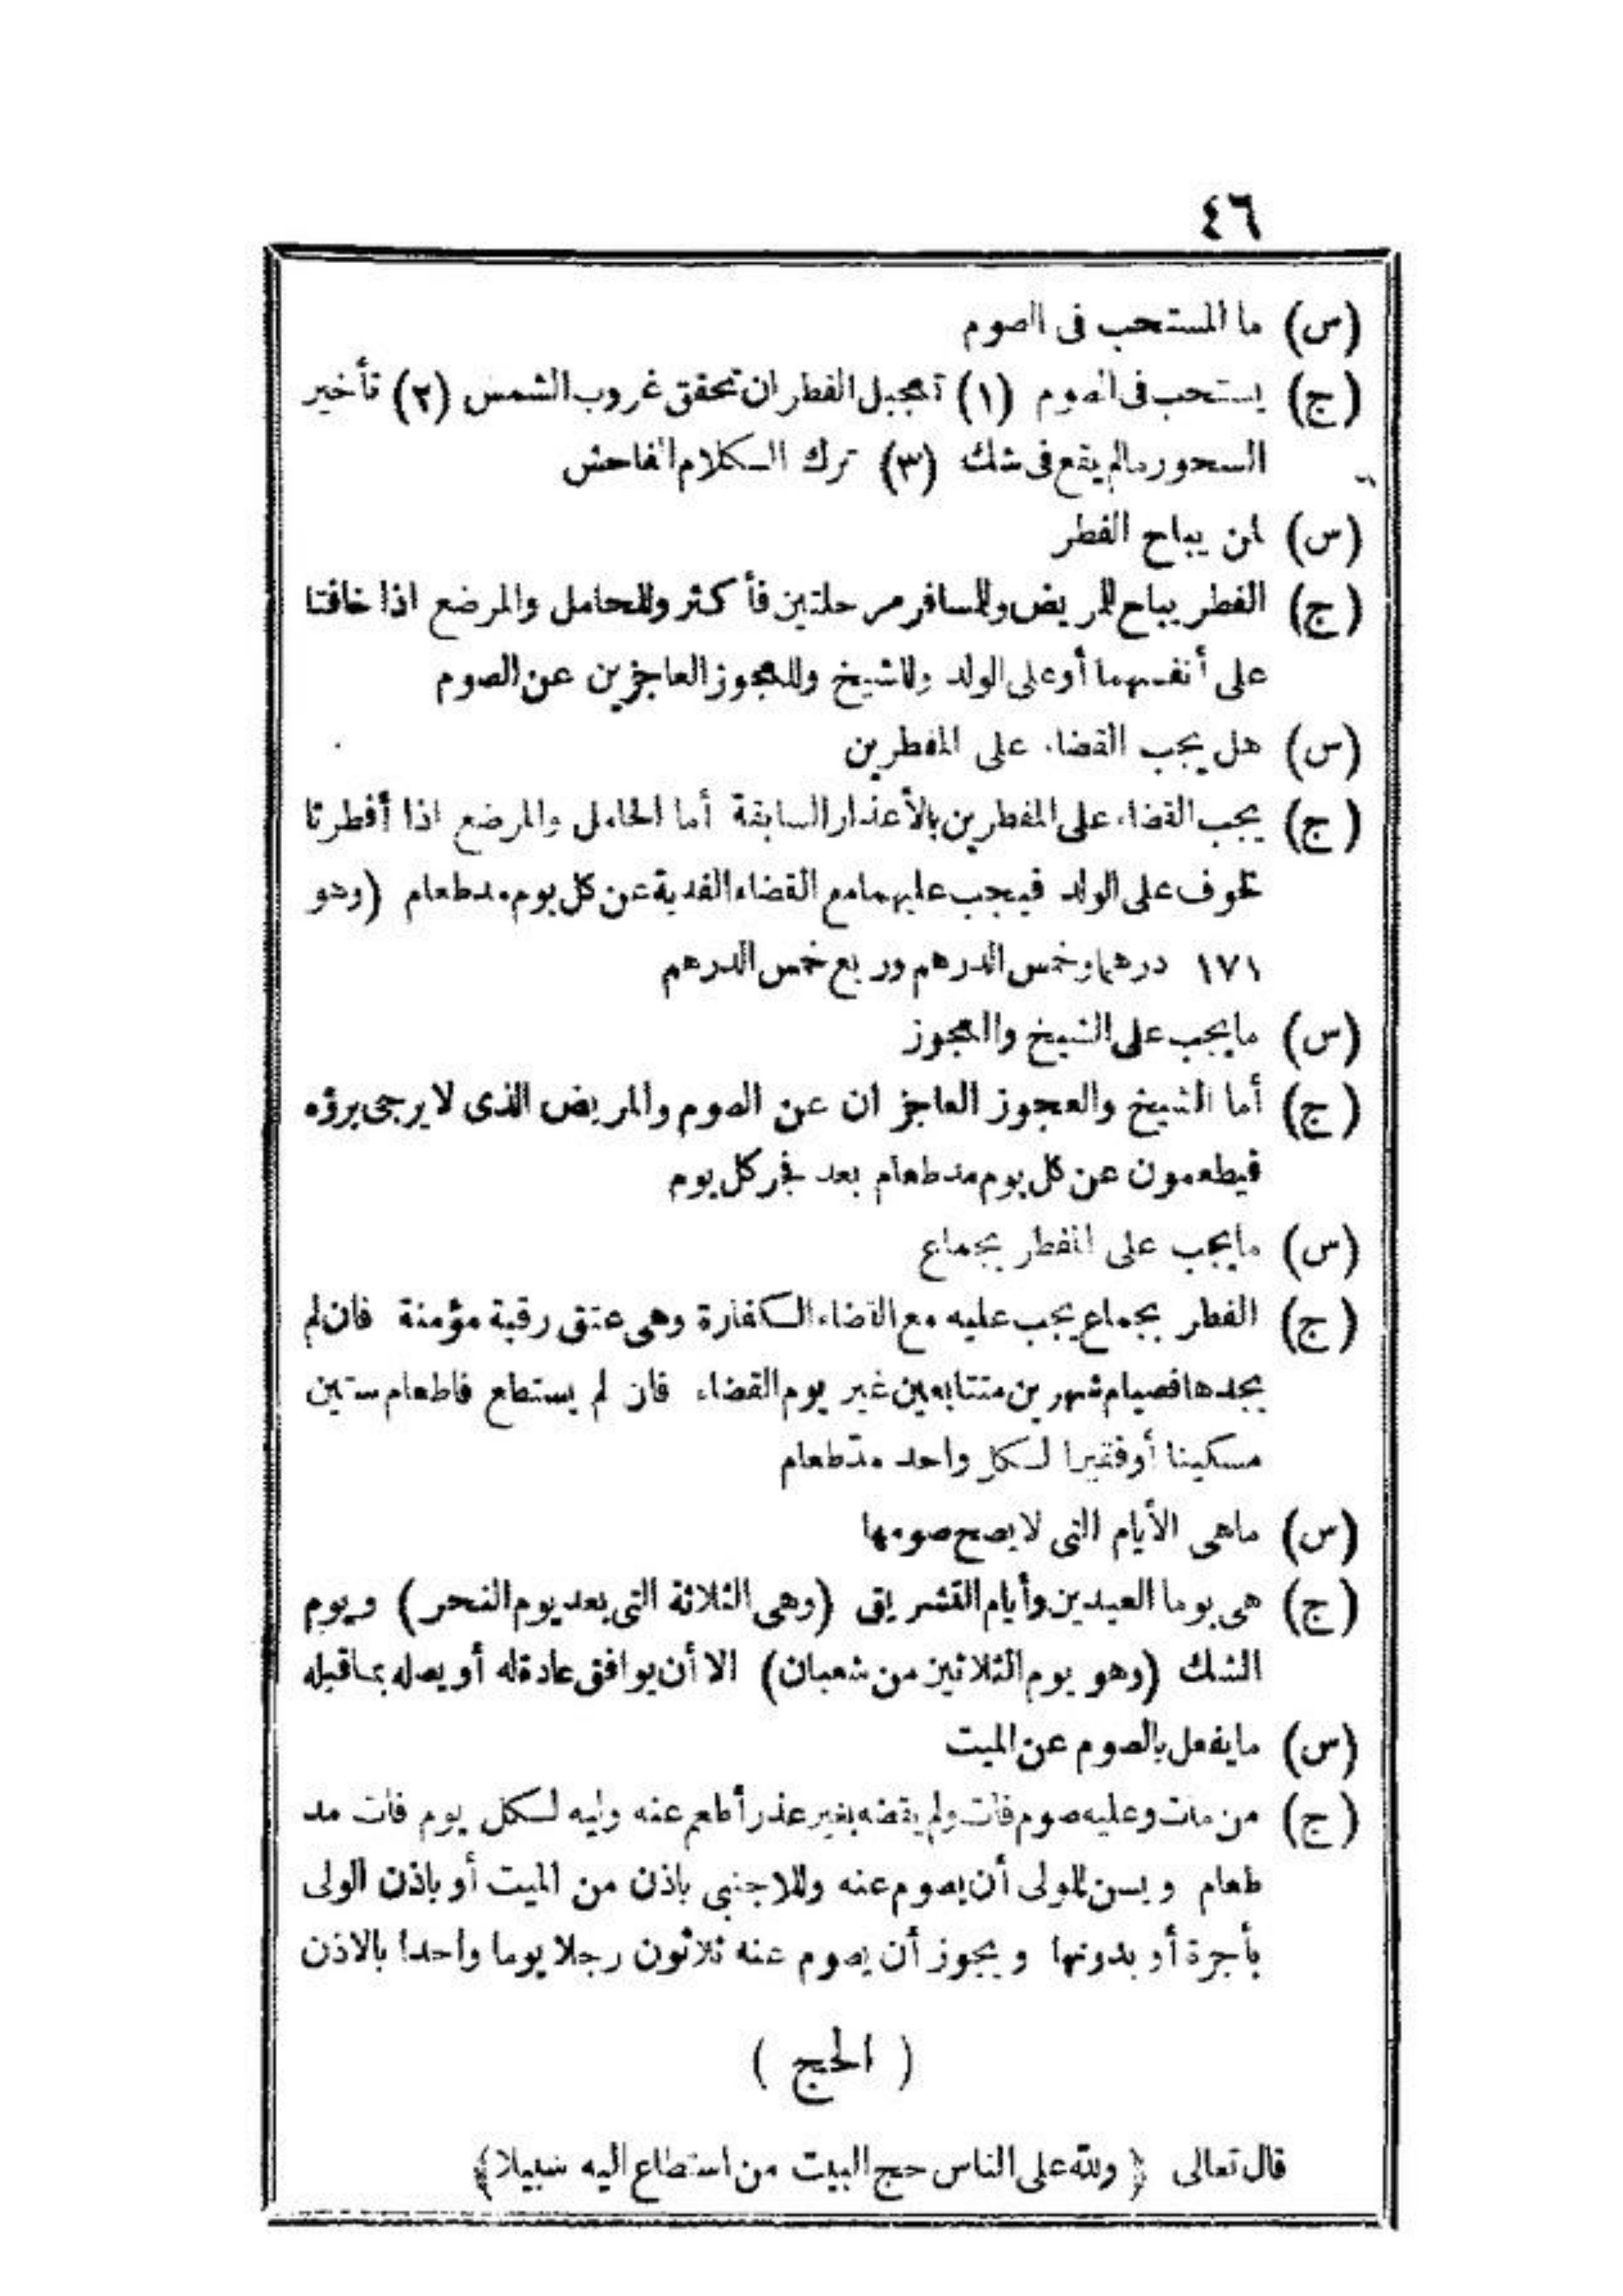 ٤٦
(س) ما المستحب فى الصوم
(ج) يستحب فى الصوم (١) تعجيل الفطر ان تحقق غروب الشمس (٢) تأخير
السحور مالم يقع فى شك (٣) ترك الكلام الفاحش
(س) لمن يباح الفطر
(ج) الفطر يباح للمريض وللمسافر مرحلتين فأكثر وللحامل والمرضع اذا خافتا
على أنفسهما أو على الولد وللشيخ وللعجوز العاجزين عن الصوم
(س) هل يجب القضاء على المفطرين
(ج) يجب القضاء على المفطرين بالأعذار السابقة أما الحامل والمرضع اذا أفطرتا
لخوف على الولد فيجب عليهما مع القضاء الفدية عن كل يوم مد طعام (وهو
١٧١ درهما وخمس الدرهم وربع خمس الدرهم
(س) ما يجب على الشيخ والعجوز
(ج) أما الشيخ والعجوز العاجزان عن الصوم والمريض الذى لا يرجى برؤه
فيطعمون عن كل يوم مد طعام بعد فجر كل يوم
(س) ما يجب على المفطر بجماع
(ج) الفطر بجماع يجب عليه مع القضاء الكفارة وهى عتق رقبة مؤمنة فان لم
يجدها فصيام شهرين متتابعين غير يوم القضاء فان لم يستطع فاطعام ستين
مسكينا أو فقيرا لكل واحد مدّ طعام
(س) ماهى الأيام التى لا يصح صومها
(ج) هى يوما العيدين وأيام التشريق (وهى الثلاثة التى بعد يوم النحر) ويوم
الشك (وهو يوم الثلاثين من شعبان) الا أن يوافق عادة له أو يصله بما قبله
(س) ما يفعل بالصوم عن الميت
(ج) من مات وعليه صوم فات ولم يقضه بغير عذر أطعم عنه وليه لكل يوم فات مد
طعام ويسن للولى أن يصوم عنه وللاجنبى باذن من الميت أو باذن الولى
بأجرة أو بدونها ويجوز أن يصوم عنه ثلاثون رجلا يوما واحدا بالاذن
( الحج )
قال تعالى ﴿ ولله على الناس حج البيت من استطاع اليه سبيلا﴾